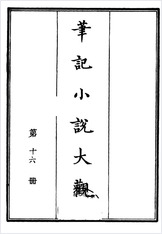 筆記小說大觀
第十六冊